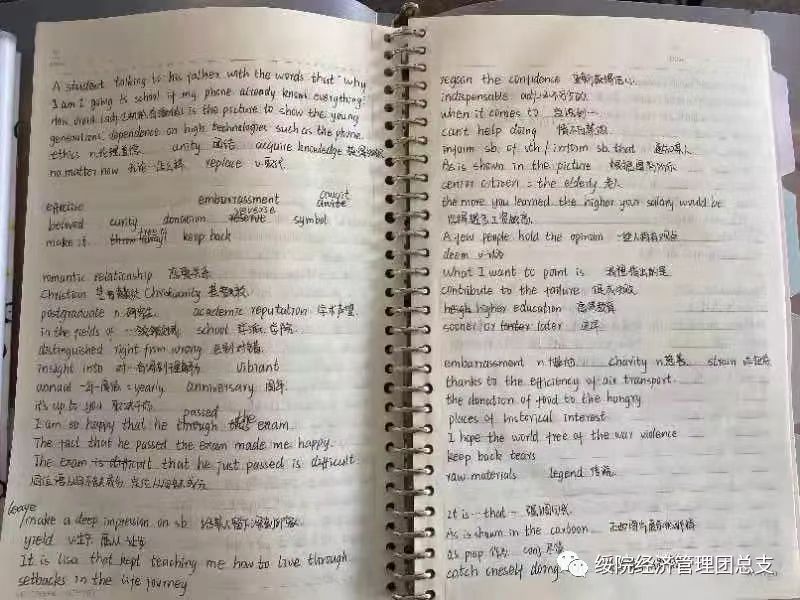 A student talking to his father with the words that "why
I am I going to school if my phone already knows everything?
How droid is the picture to show the young
generations dependence on high technologies such as the phone.
ethics n.伦理道德 unity 团结 acquire knowledge
no matter how 无论…怎么样 replace v.取代
effective embarrassment
beloved curity donation reverse symbol
make it keep back
romantic relationship 恋爱关系
Christian 基督教徒 Christianity 基督教
postgraduate n.研究生 academic reputation 学术声望
in the fields of 一领域 school 学派
distinguished right from wrong 区别对错
insight into vibrant
annual 一年一度的 = yearly anniversary 周年
it's up to you 取决于你
passed the
I am so happy that he through this exam.
The fact that he passed the exam made me happy.
The exam is difficult that he just passed is difficult.
leave
make a deep impression on sb 给某人留下深刻印象
yield
It is lisa that kept teaching me how to live through
setbacks in the life journey
regain the confidence 重新获得信心
indispensable adj.必不可少的
when it comes to
can't help doing 情不自禁
inform sb. of sth / inform sb. that 通知某人
As is shown in the picture 根据图片所示
the elderly 老人
the more you learned the higher your salary would be
A few people hold the opinion 一些人持有观点
deem v.认为
What I want to point is 我想指出的是
contribute to the failure 促成失败
higher education 高等教育
sooner or later 迟早
embarrassment n. charity n.慈善 strain
thanks to the efficiency of air transport.
the donation of food to the hungry
places of historical interest
I hope the world free of the war violence
keep back tears
raw materials legend 传说
It is … that … 强调句
As is shown in the carboon
as prep. 作为 conj.
catch oneself doing
绥院经济管理团总支